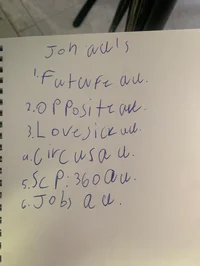 Jon au's
1. Future au.
2. Opposite au.
3. Lovesick au.
4. Circus au.
5. SCP: 360 au.
6. Jobs au.